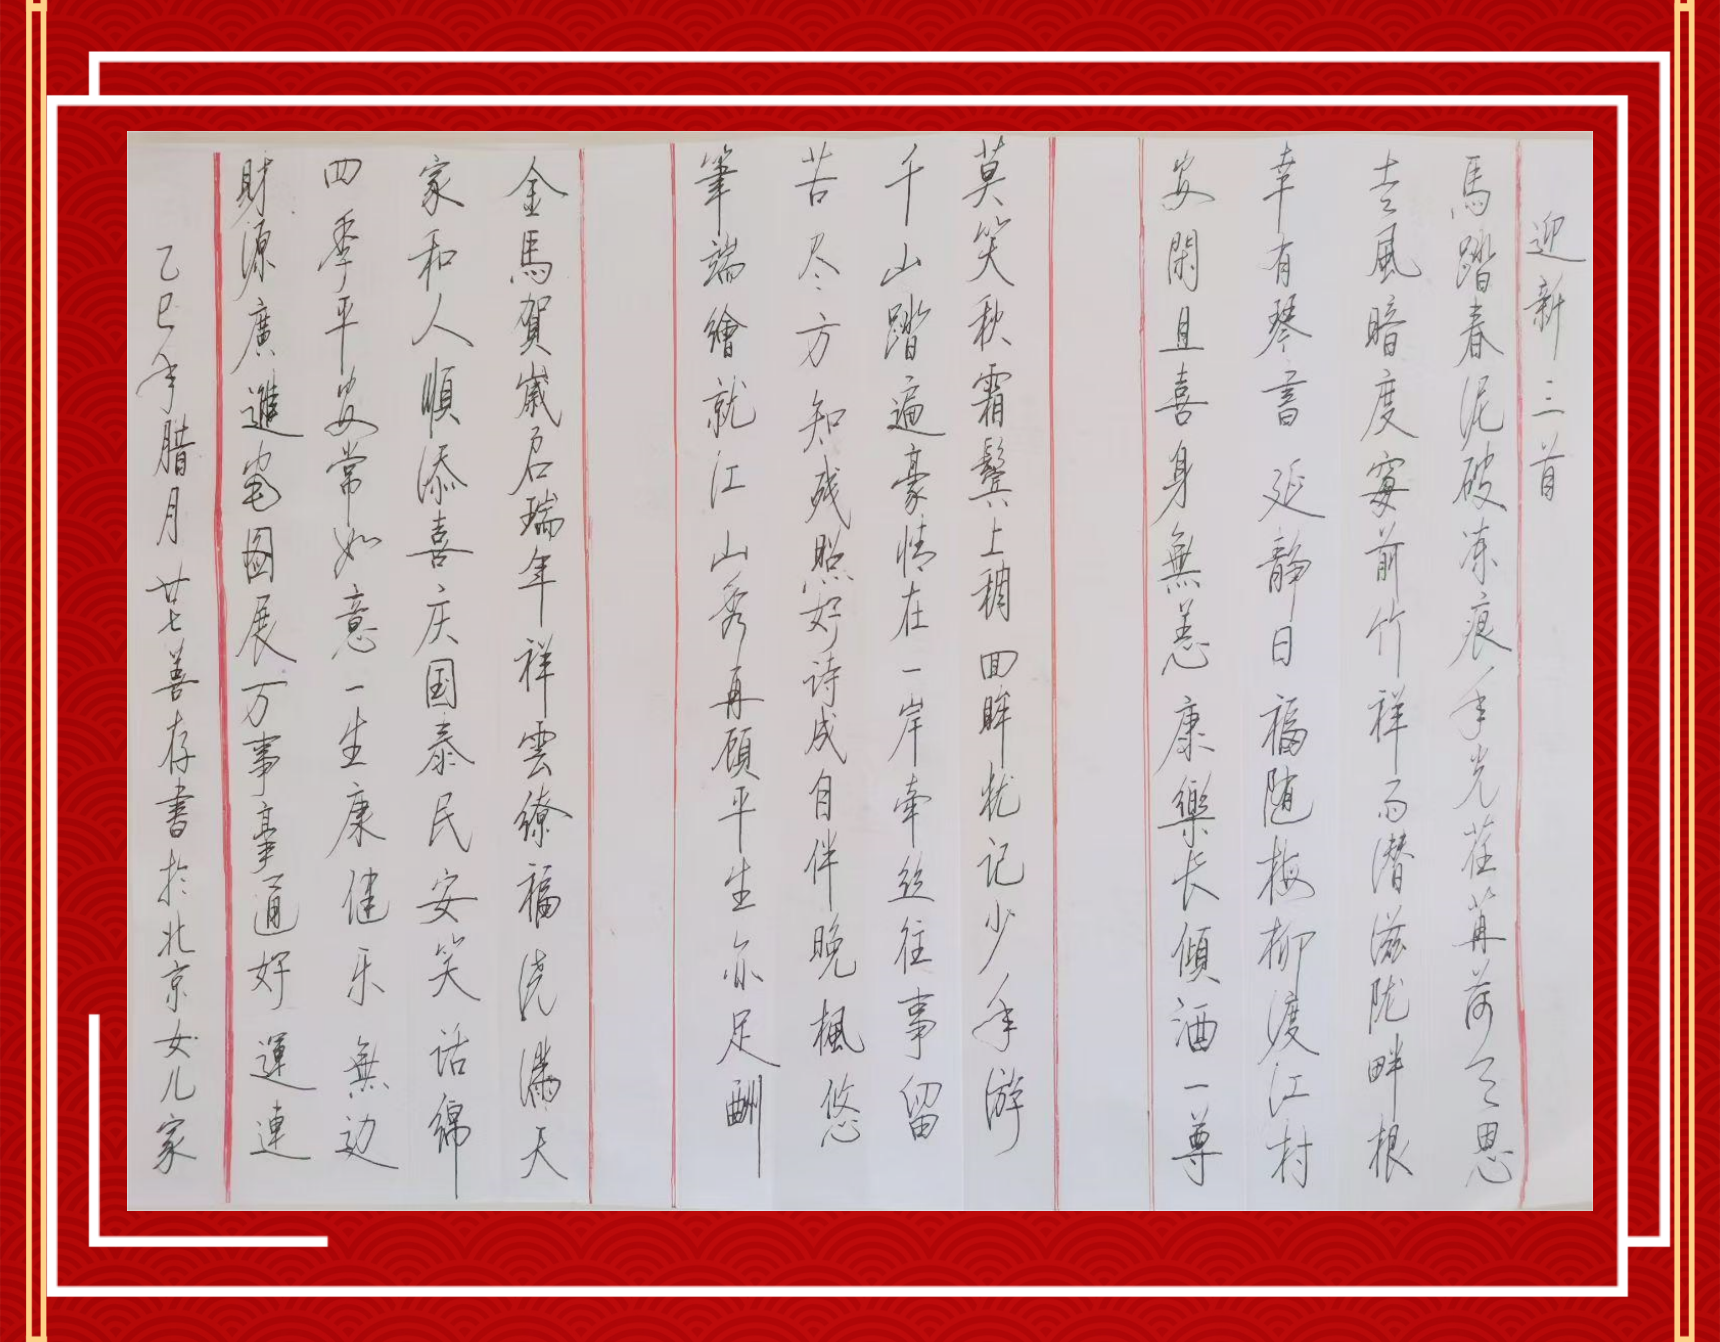 迎新三首
馬踏春泥破冻痕年光荏苒荷天恩
吉風暗度窗前竹祥雨潜滋陇畔根
幸有琴書延静日福随梅柳渡江村
安閑且喜身無恙康樂长傾酒一尊
莫笑秋霜鬓上稠回眸犹记少年游
千山踏遍豪情在一岸牵丝往事留
苦尽方知残照好诗成自伴晚楓悠
筆端繪就江山秀再顾平生亦足酬
金馬賀歲启瑞年祥雲缭福浇满天
家和人順添喜庆国泰民安笑话綿
四季平安常如意一生康健乐無边
財源廣進图展万事亨通好運連
乙巳年腊月廿七善存書於北京女儿家